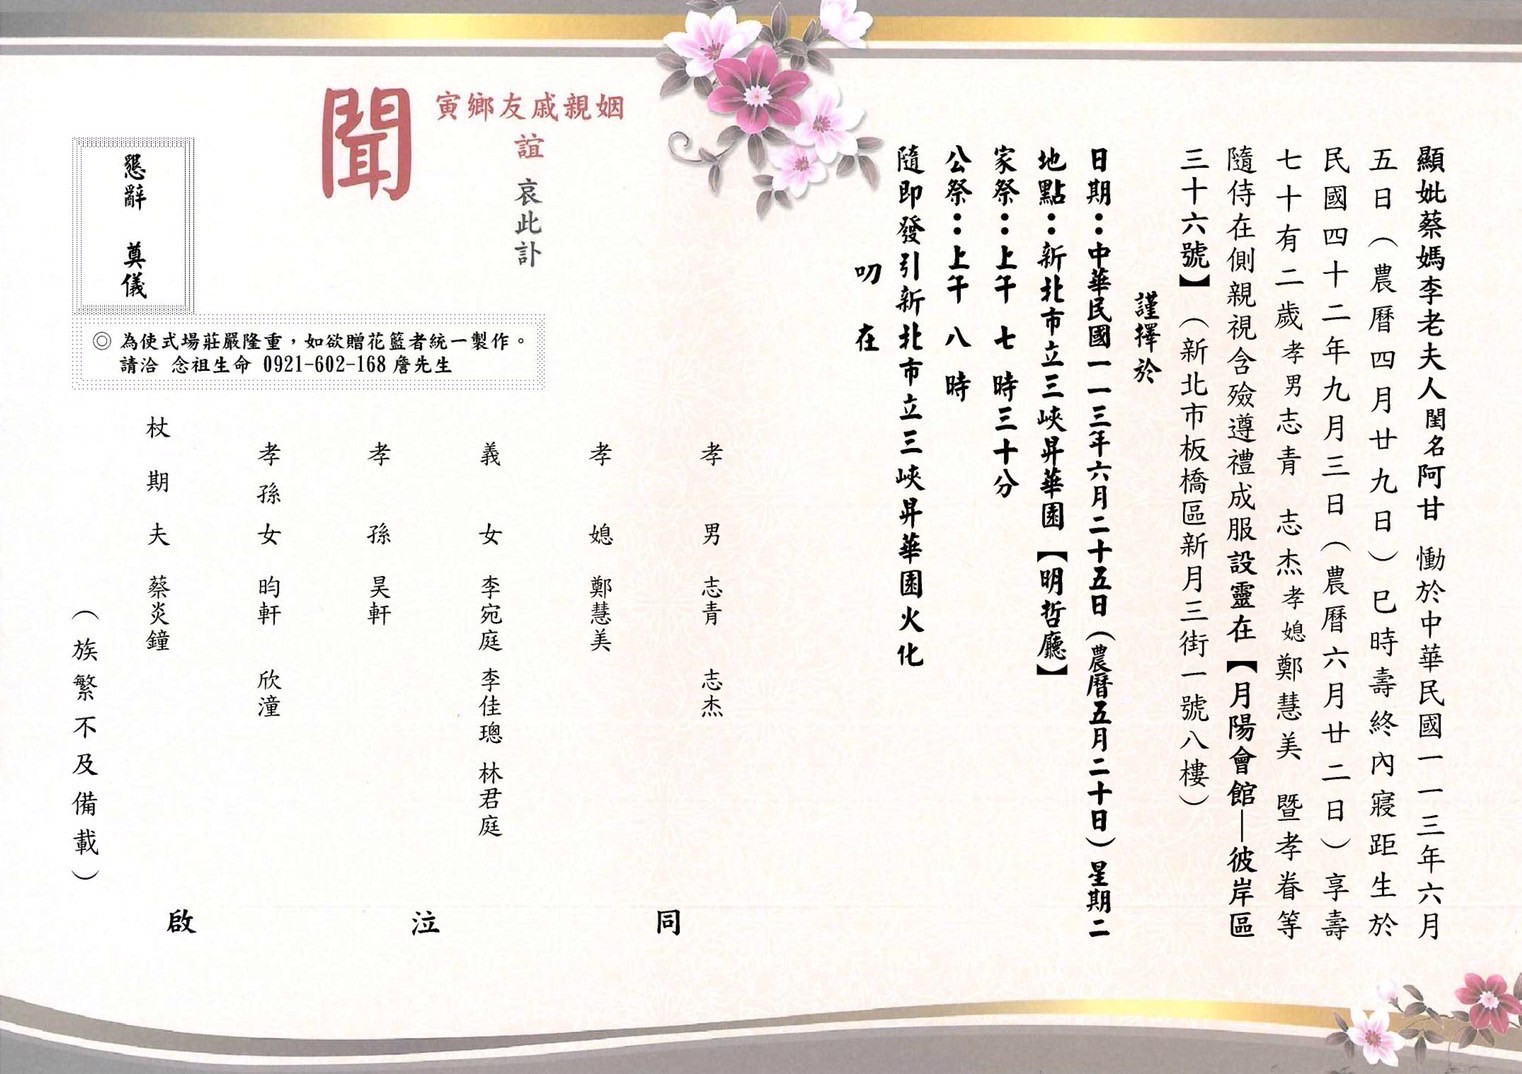 顯妣蔡媽李老夫人閨名阿甘 慟於中華民國一一三年六月
五日（農曆四月廿九日）巳時壽終內寢距生於
民國四十二年九月三日（農曆六月廿二日）享壽
七十有二歲孝男志青 志杰孝媳鄭慧美 暨孝眷等
隨侍在側親視含殮遵禮成服設靈在【月陽會館—彼岸區
三十六號】（新北市板橋區新月三街一號八樓）
謹擇於
日期：中華民國一一三年六月二十五日（農曆五月二十日）星期二
地點：新北市立三峽昇華園【明哲廳】
家祭：上午 七 時三十分
公祭：上午 八 時
隨即發引新北市立三峽昇華園火化
叨 在
姻親戚友鄉寅
誼 哀此訃
聞
孝 男 志青 志杰
孝 媳 鄭慧美
義 女 李宛庭 李佳璁 林君庭
孝 孫 昊軒
孝孫女 昀軒 欣潼
杖期夫 蔡炎鐘
（族繁不及備載）
同 泣 啟
懇辭 奠儀
◎ 為使式場莊嚴隆重，如欲贈花籃者統一製作。
請洽 念祖生命 0921-602-168 詹先生